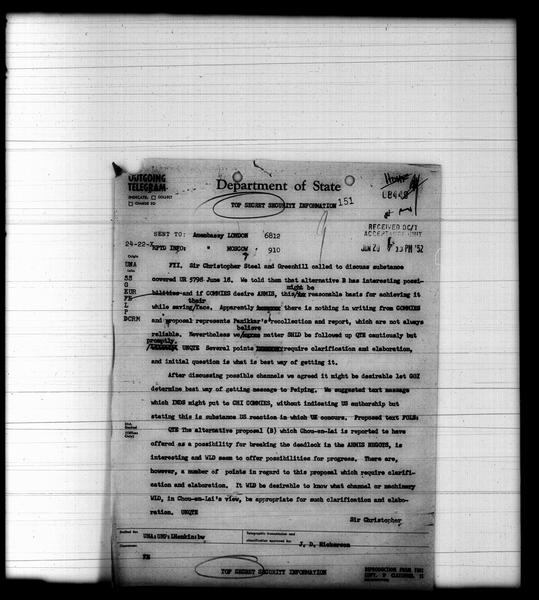 OUTGOING
TELEGRAM
INDICATE: ☐ COLLECT
☐ CHARGE TO
Department of State
TOP SECRET SECURITY INFORMATION
151
SENT TO: Amembassy LONDON 6812
RPTD INFO: " MOSCOW 910
24-22-X
RECEIVED DC/T
JUN 20 '52
Origin
UNA
Info:
SS
G
EUR
FE
L
P
DCRM
FYI, Sir Christopher Steel and Greenhill called to discuss substance
covered UR 5798 June 18. We told them that alternative B has interesting possi-
bilities and if COMMIES desire ARMIS, this might be reasonable basis for achieving it
while saving their face. Apparently there is nothing in writing from COMMIES
and proposal represents Panikkar's recollection and report, which are not always
reliable. Nevertheless we believe matter SHLD be followed up QTE cautiously but
promptly. UNQTE Several points require clarification and elaboration,
and initial question is what is best way of getting it.
After discussing possible channels we agreed it might be desirable let GOI
determine best way of getting message to Peiping. We suggested text message
which INDS might put to CHI COMMIES, without indicating US authorship but
stating this is substance US reaction in which UK concurs. Proposed text FOLS:
QTE The alternative proposal (B) which Chou-en-Lai is reported to have
offered as a possibility for breaking the deadlock in the ARMIS NEGOTS, is
interesting and WLD seem to offer possibilities for progress. There are,
however, a number of points in regard to this proposal which require clarifi-
cation and elaboration. It WLD be desirable to know what channel or machinery
WLD, in Chou-en-Lai's view, be appropriate for such clarification and elabo-
ration. UNQTE
Sir Christopher
Drafted by:
UNA:UNP:LHenkin:bw
Telegraphic transmission and
classification approved by:
J. D. Hickerson
FE
TOP SECRET SECURITY INFORMATION
REPRODUCTION FROM THIS